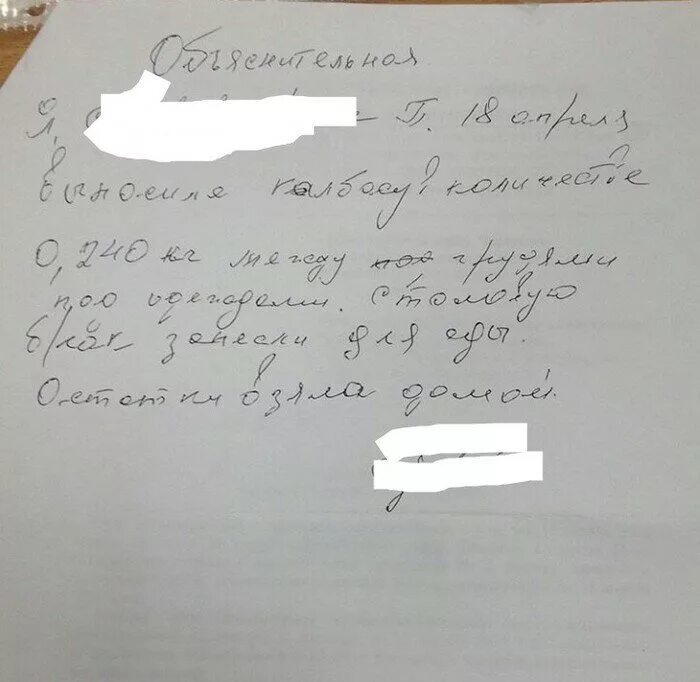 Объяснительная
Я, Г. 18 апреля
выносила колбасу в количестве
0,240 кг между грудями
под одеждами. Столовую
б/как занесли для еды.
Остатки взяла домой.